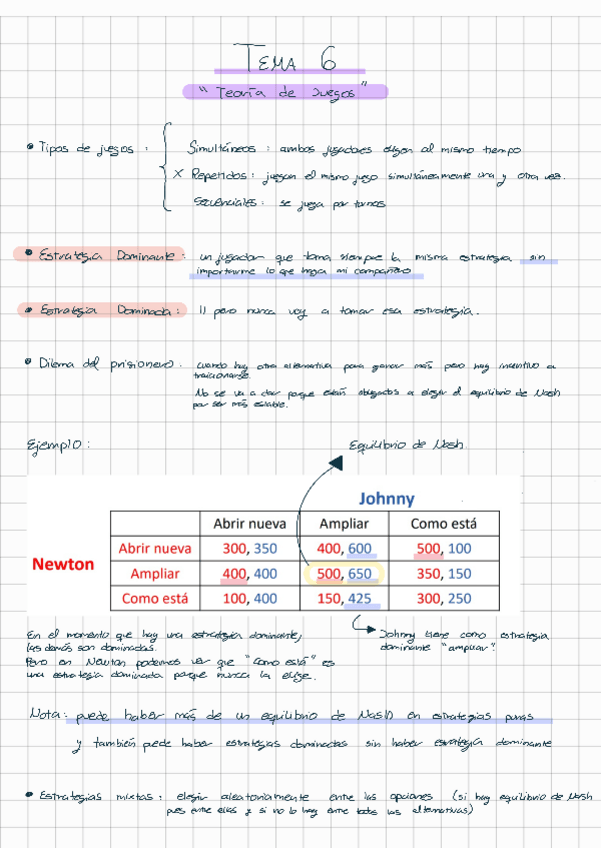 TEMA 6
"Teoría de Juegos"
• Tipos de juegos :
Simultáneos : ambos jugadores eligen al mismo tiempo
X Repetidos : juegan el mismo juego simultáneamente una y otra vez.
Secuenciales : se juega por turnos
• Estrategia Dominante : un jugador que toma siempre la misma estrategia sin
importarme lo que haga mi compañero
• Estrategia Dominada : II pero nunca voy a tomar esa estrategia.
• Dilema del prisionero : cuando hay otra alternativa para ganar más pero hay incentivo a
traicionarse.
No se va a dar porque están obligados a elegir el equilibrio de Nash
por ser más estable.
Ejemplo :
Equilibrio de Nash
Johnny
Abrir nueva Ampliar Como está
Abrir nueva 300, 350 400, 600 500, 100
Newton
Ampliar 400, 400 500, 650 350, 150
Como está 100, 400 150, 425 300, 250
En el momento que hay una estrategia dominante,
las demás son dominadas.
Pero en Newton podemos ver que "como está" es
una estrategia dominada porque nunca la elige.
Johnny tiene como estrategia
dominante "ampliar".
Nota : puede haber más de un equilibrio de Nash en estrategias puras
y también puede haber estrategias dominadas sin haber estrategia dominante
• Estrategias mixtas : elegir aleatoriamente entre las opciones (si hay equilibrio de Nash
pues entre ellos y si no lo hay entre todas las alternativas)